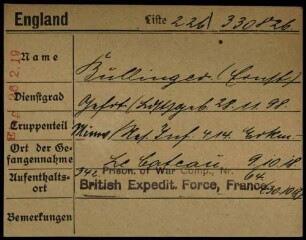 England Liste 226/330826
B 29 26.2.19
Name Büllinger (Ernst)
Dienstgrad Gefrt. 28.11.98.
Truppenteil Minw/Res Inf 414.
Ort der Ge-
fangennahme Le Cateau 9.10.18
Aufenthalts-
ort Prison. of War Comp., Nr. 64.
British Expedit. Force, France
Bemerkungen